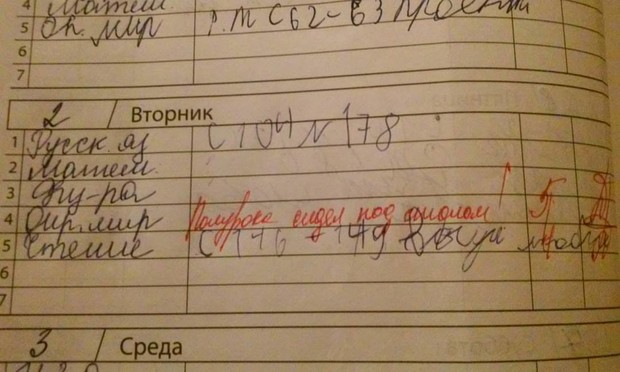 4 Матем.
5 Ок. мир Р.Т С 62-63 проект
6
7
2 / Вторник
1 Русск. яз С 104 N 178
2 Матем.
3 Физ-ра
4 Окр. мир Полурока сидел под столом! 5
5 Чтение С 176-179
6
7
3 / Среда